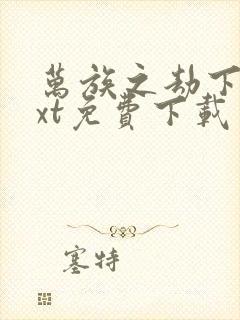 萬族之劫下
xt免費下載
塞特